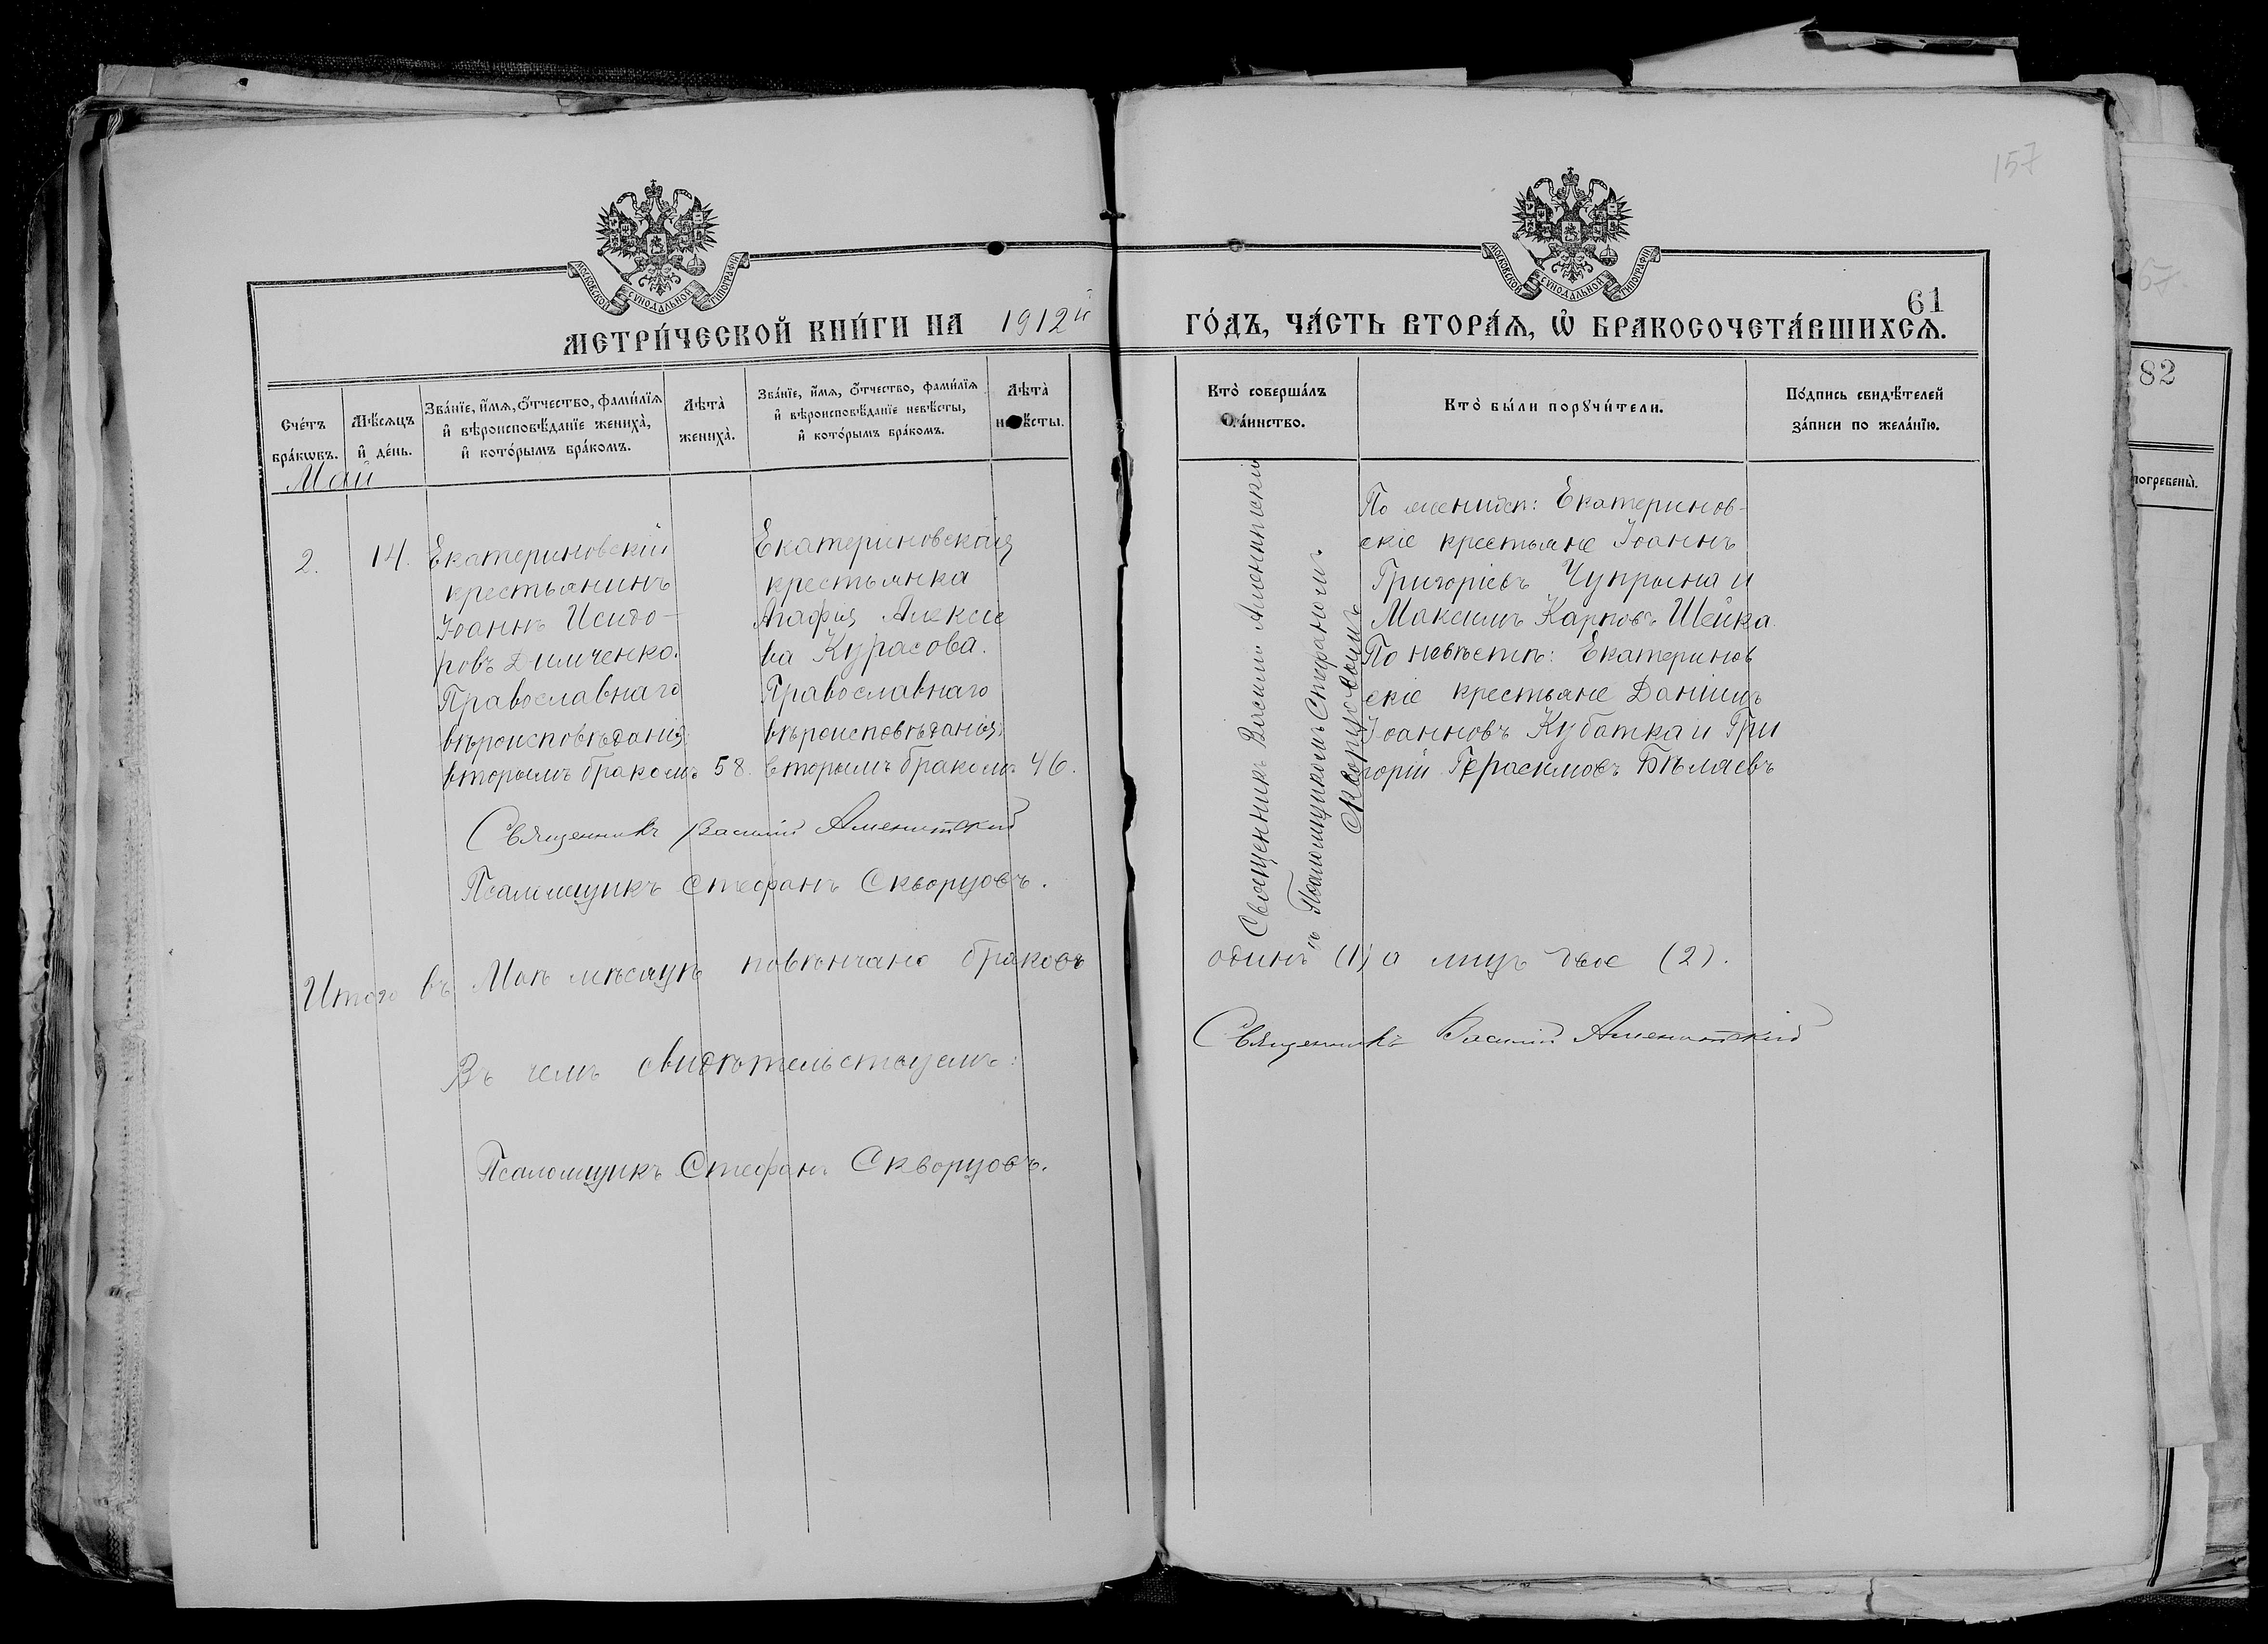 157
МОСКОВСКОЙ СѴНОДАЛЬНОЙ ТИПОГРАФІИ
МОСКОВСКОЙ СѴНОДАЛЬНОЙ ТИПОГРАФІИ
61
МЕТРИ́ЧЕСКОЙ КНИ́ГИ НА 1912й
ГО́ДЪ, ЧА́СТЬ ВТОРА́Ѧ, Ѡ҆ БРАКОСОЧЕТА́ВШИХСѦ.
Сче́тъ
бра́кѡвъ.
Мѣ́сѧцъ
и҆ де́нь.
Зва́нїе, и҆́мѧ, ѻ҆́тчество, фами́лїѧ
и҆ вѣроисповѣ́данїе жениха̀,
и҆ кото́рымъ бра́комъ.
Лѣта̀
жениха̀.
Зва́нїе, и҆́мѧ, ѻ҆́тчество, фами́лїѧ
и҆ вѣроисповѣ́данїе невѣ́сты,
и҆ кото́рымъ бра́комъ.
Лѣта̀
невѣ́сты.
Кто̀ соверша́лъ
Та́инство.
Кто̀ бы́ли порꙋчи́тели.
По́дпись свидѣ́телей
за́писи по жела́нїю.
Май
2.
14.
Екатериновскій
крестьянинъ
Іоаннъ Исидо-
ровъ Димченко.
Православнаго
вѣроисповѣданія:
вторымъ бракомъ
58.
Екатериновская
крестьянка
Агафія Алексіе
ва Курасова.
Православнаго
вѣроисповѣданія:
вторымъ бракомъ
46.
Священникъ Василій Аменитскій
съ Псаломщикомъ Стефаномъ
Скворцовымъ
По женихѣ: Екатеринов-
скіе крестьяне Іоаннъ
Григоріевъ Чупрына и
Максимъ Карповъ Шейка.
По невѣстѣ: Екатеринов
скіе крестьяне Даніилъ
Іоанновъ Кубатка и Гри
горій Герасимовъ Бѣляевъ
Священникъ Василій Аменитскій
Псаломщикъ Стефанъ Скворцовъ.
Итого въ Маѣ мѣсяцѣ повѣнчано браковъ
одинъ (1) а лицъ двое (2).
Священникъ Василій Аменитскій
Въ чемъ свидѣтельствуемъ:
Псаломщикъ Стефанъ Скворцовъ.
82
погребены̀.